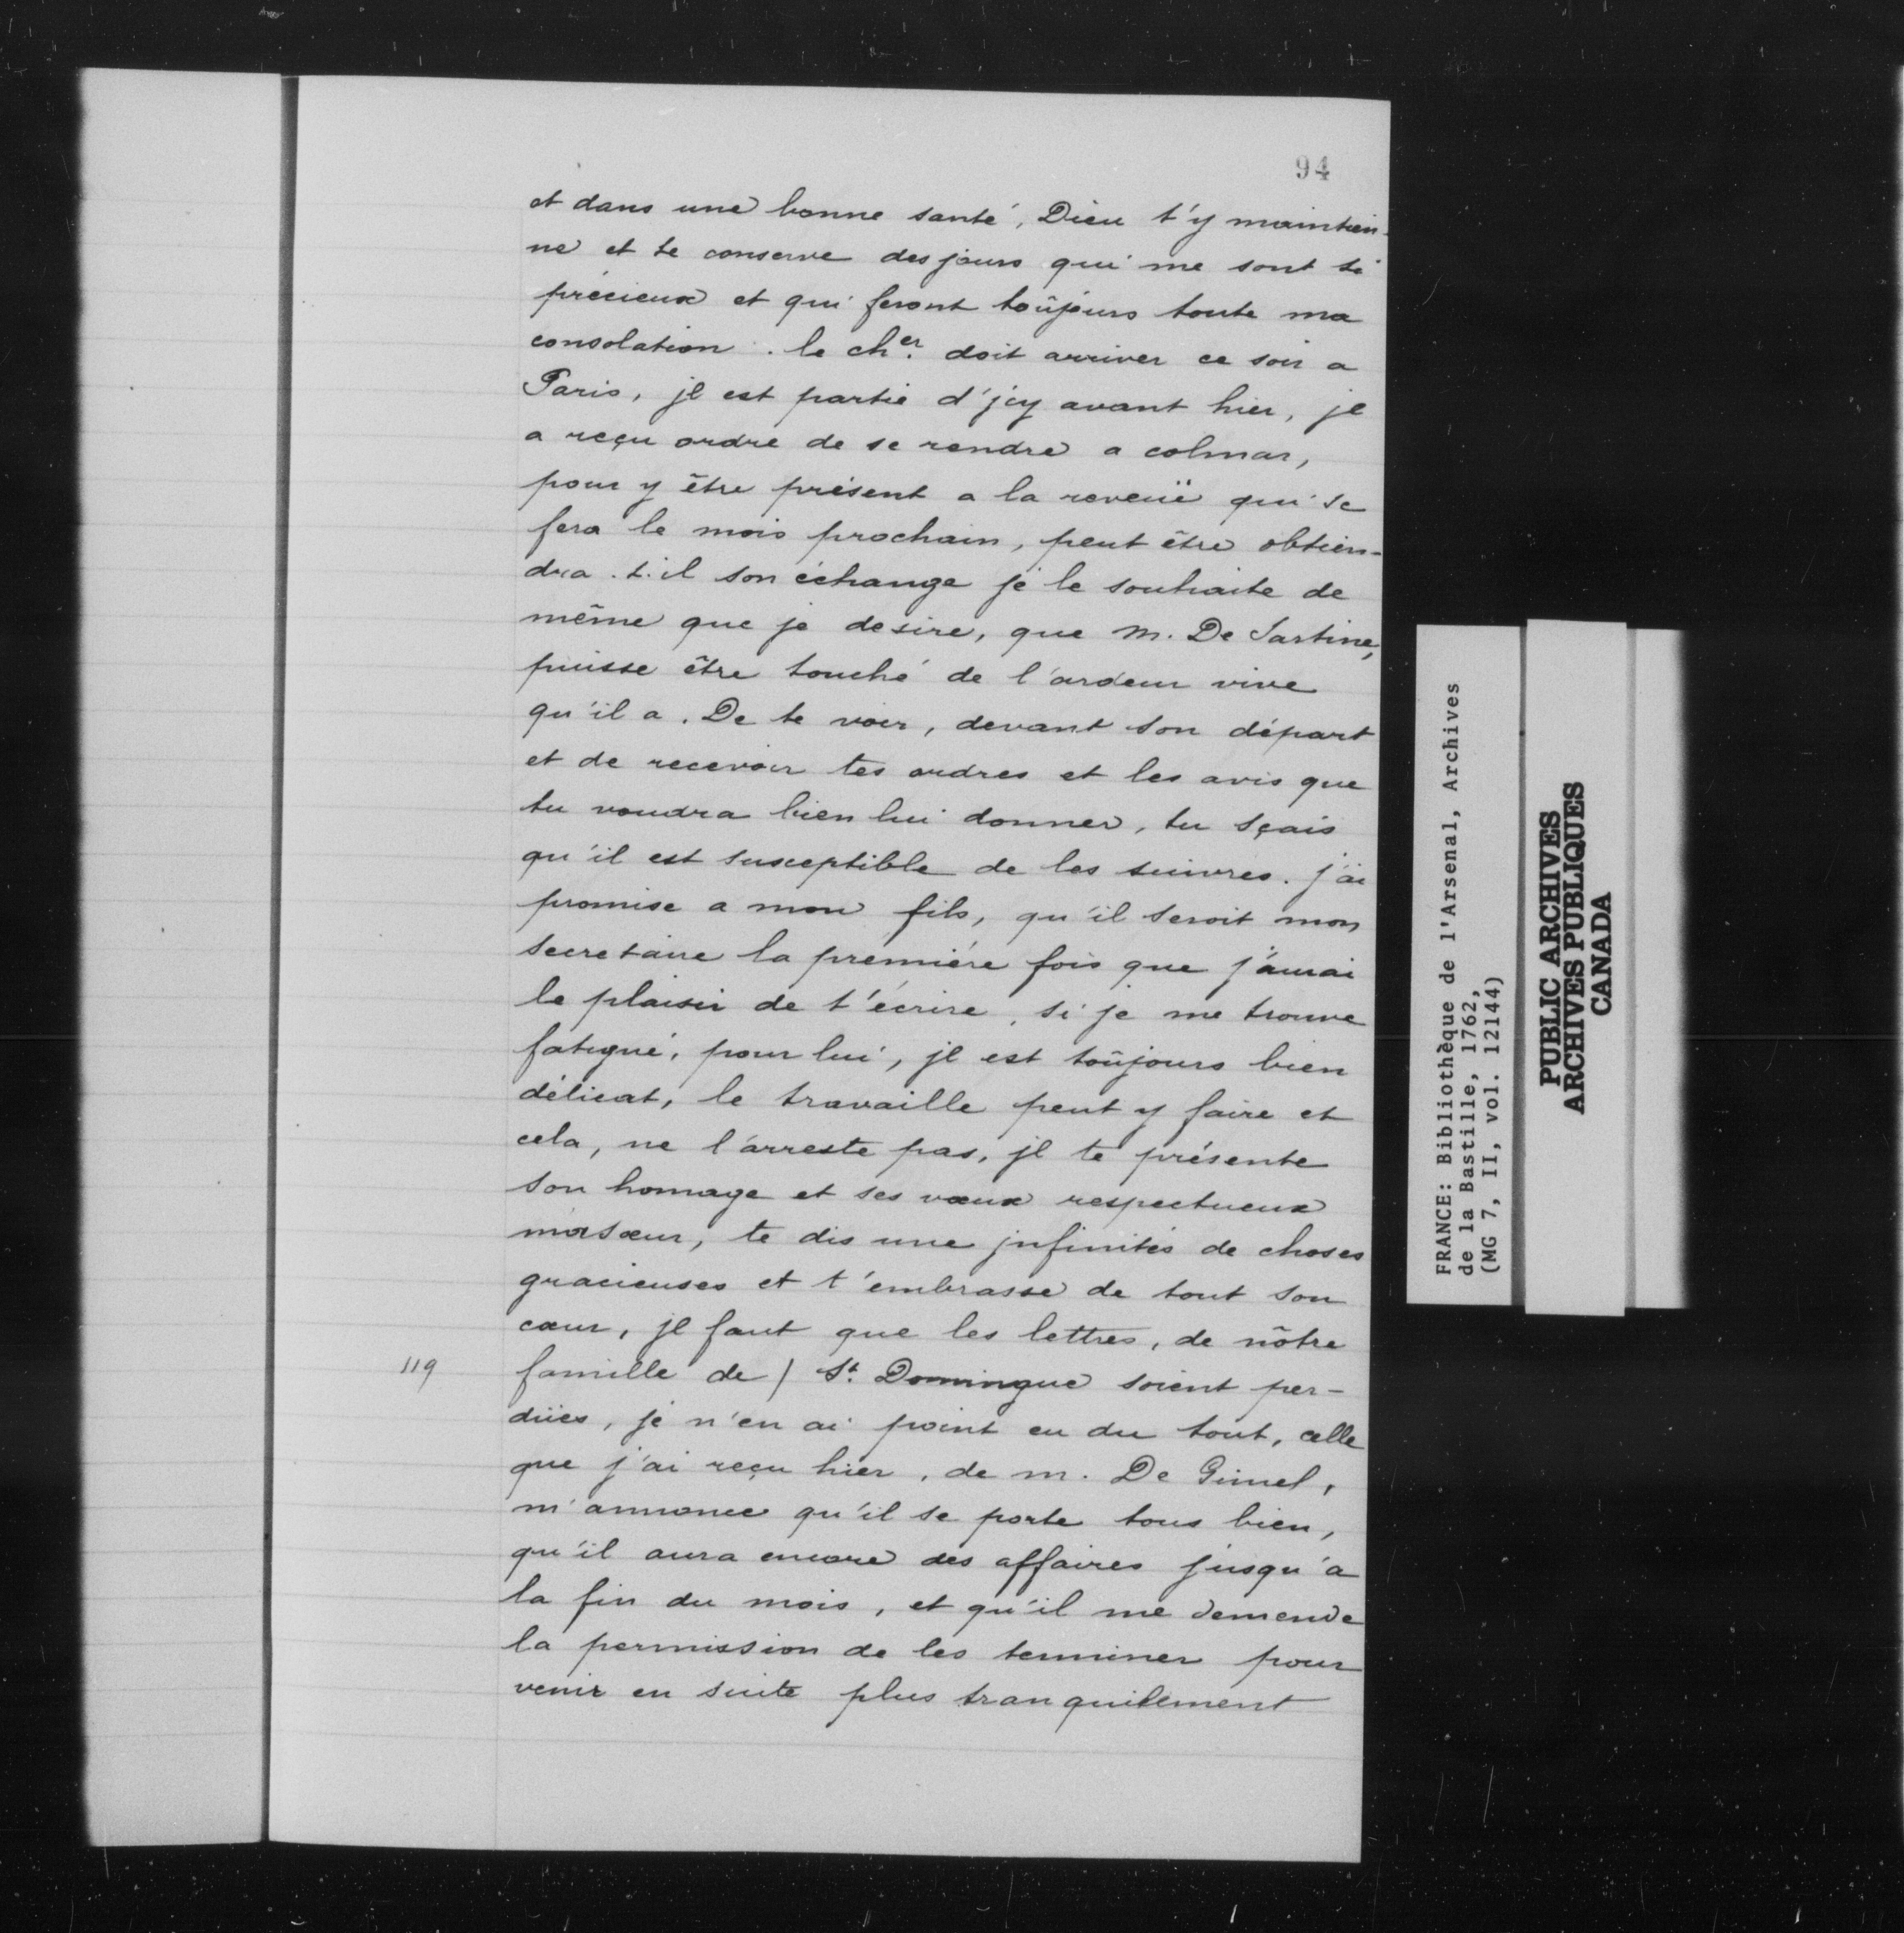 94
et dans une bonne santé, Dieu t'y maintien-
ne et te conserve des jours qui me sont si
précieux et qui feront toûjours toute ma
consolation. le cher. doit arriver ce soir a
Paris, jl est partie d'jcy avant hier, jl
a reçu ordre de se rendre a colmar,
pour y être présent a la reveuë qui se
fera le mois prochain, peut être obtien-
dra.t.il son échange je le souhaite de
même que je desire, que M. De Sartine,
puisse être touché de l'ardeur vive
qu'il a. De te voir, devant son départ
et de recevoir tes ordres et les avis que
tu voudra bien lui donner, tu sçais
qu'il est susceptible de les suivres. j'ai
promise a mon fils, qu'il seroit mon
secretaire la première fois que j'aurai
le plaisir de t'écrire, si je me trouve
fatigué, pour lui, jl est toûjours bien
délicat, le travaille peut y faire et
cela, ne l'arreste pas, jl te présente
son homage et ses vœux respectueux
masœur, te dis une jnfinités de choses
gracieuses et t'embrasse de tout son
cœur, jl faut que les lettres, de nôtre
119 famille de / St. Domingue soient per-
düés, je n'en ai point eu du tout, celle
que j'ai reçu hier, de m. De Gimel,
m'annonce qu'il se porte tous bien,
qu'il aura encore des affaires jusqu'a
la fin du mois, et qu'il me demende
la permission de les terminer pour
venir en suite plus tranquilement
FRANCE: Bibliothèque de l'Arsenal, Archives
de la Bastille, 1762,
(MG 7, II, vol. 12144)
PUBLIC ARCHIVES
ARCHIVES PUBLIQUES
CANADA